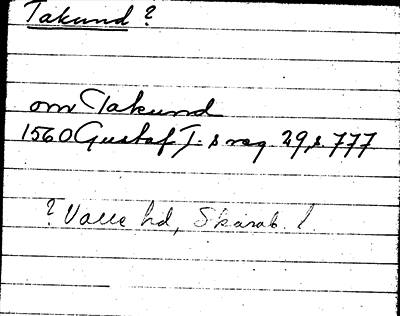 Takund ?
om Takund
1560 Gustaf I:s reg. 29, s. 777
? Valle hd, Skarab. l